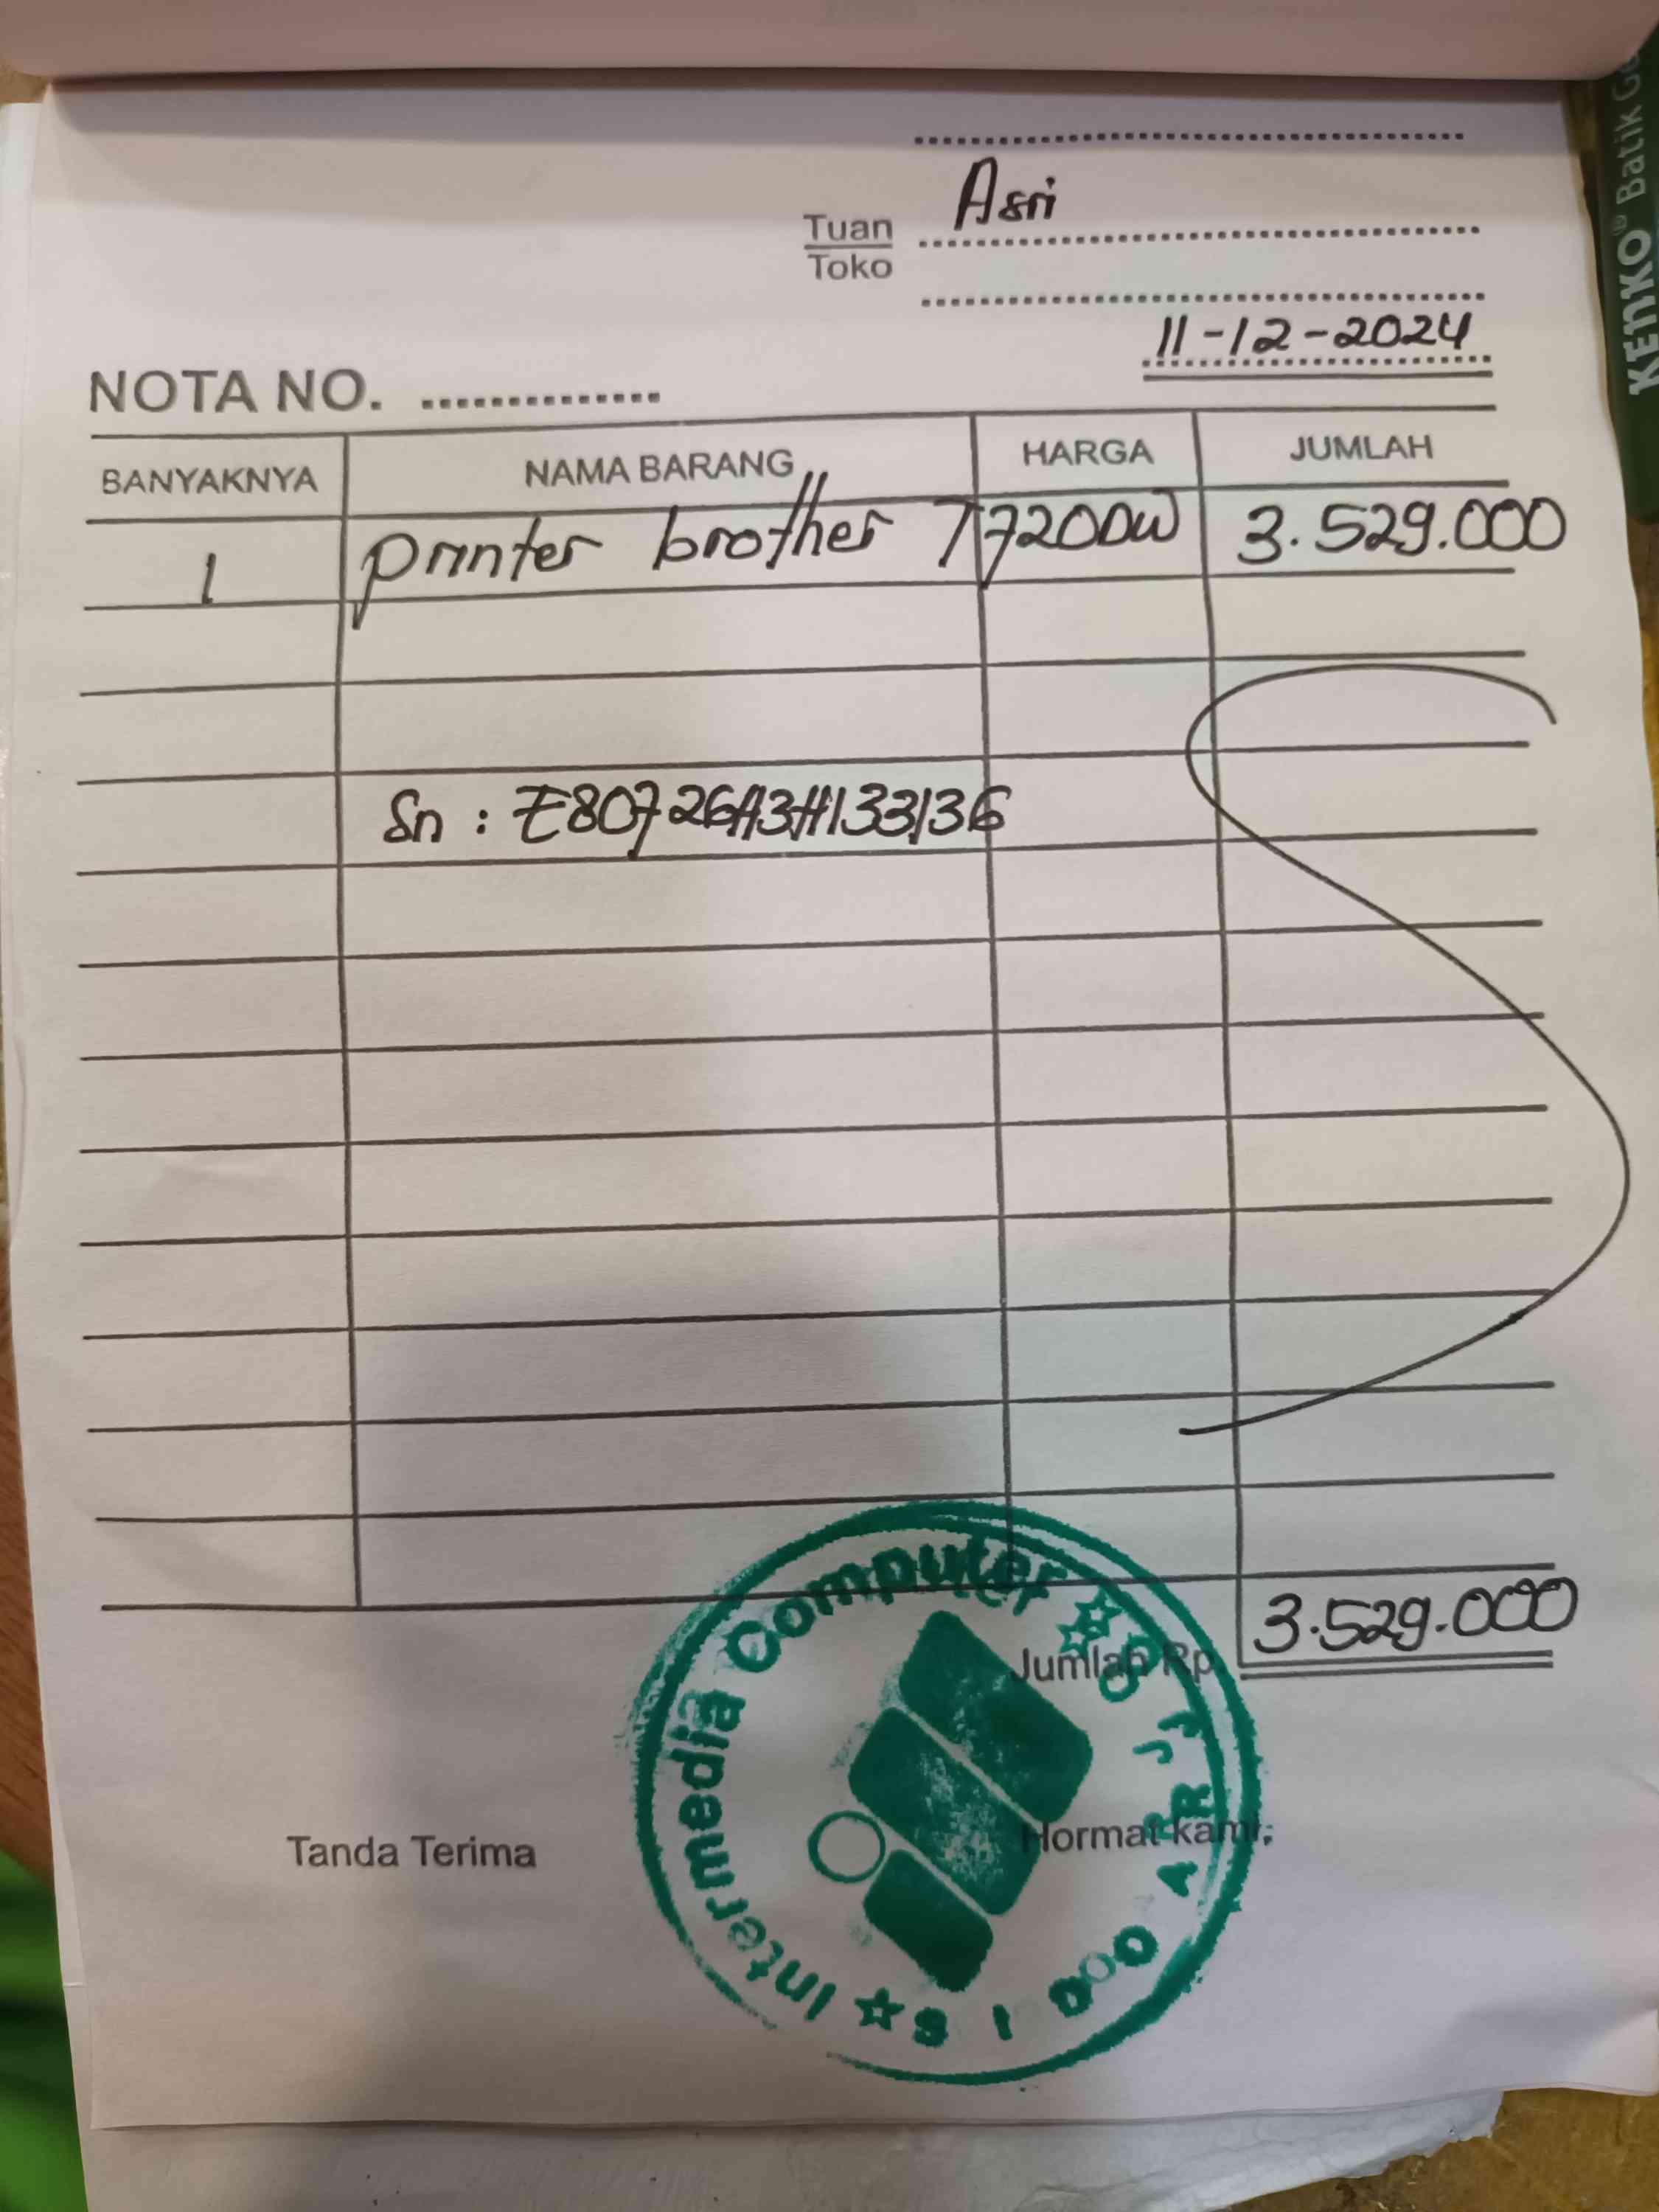 KENKO® Batik Ge
Asri
Tuan
Toko
11-12-2024
NOTA NO. ..............
BANYAKNYA NAMA BARANG HARGA JUMLAH
1 printer brother T720DW 3.529.000
Sn : E80726A3H133136
3.529.000
Jumlah Rp
Tanda Terima Hormat kami,
Intermedia Computer
SIDOARJO